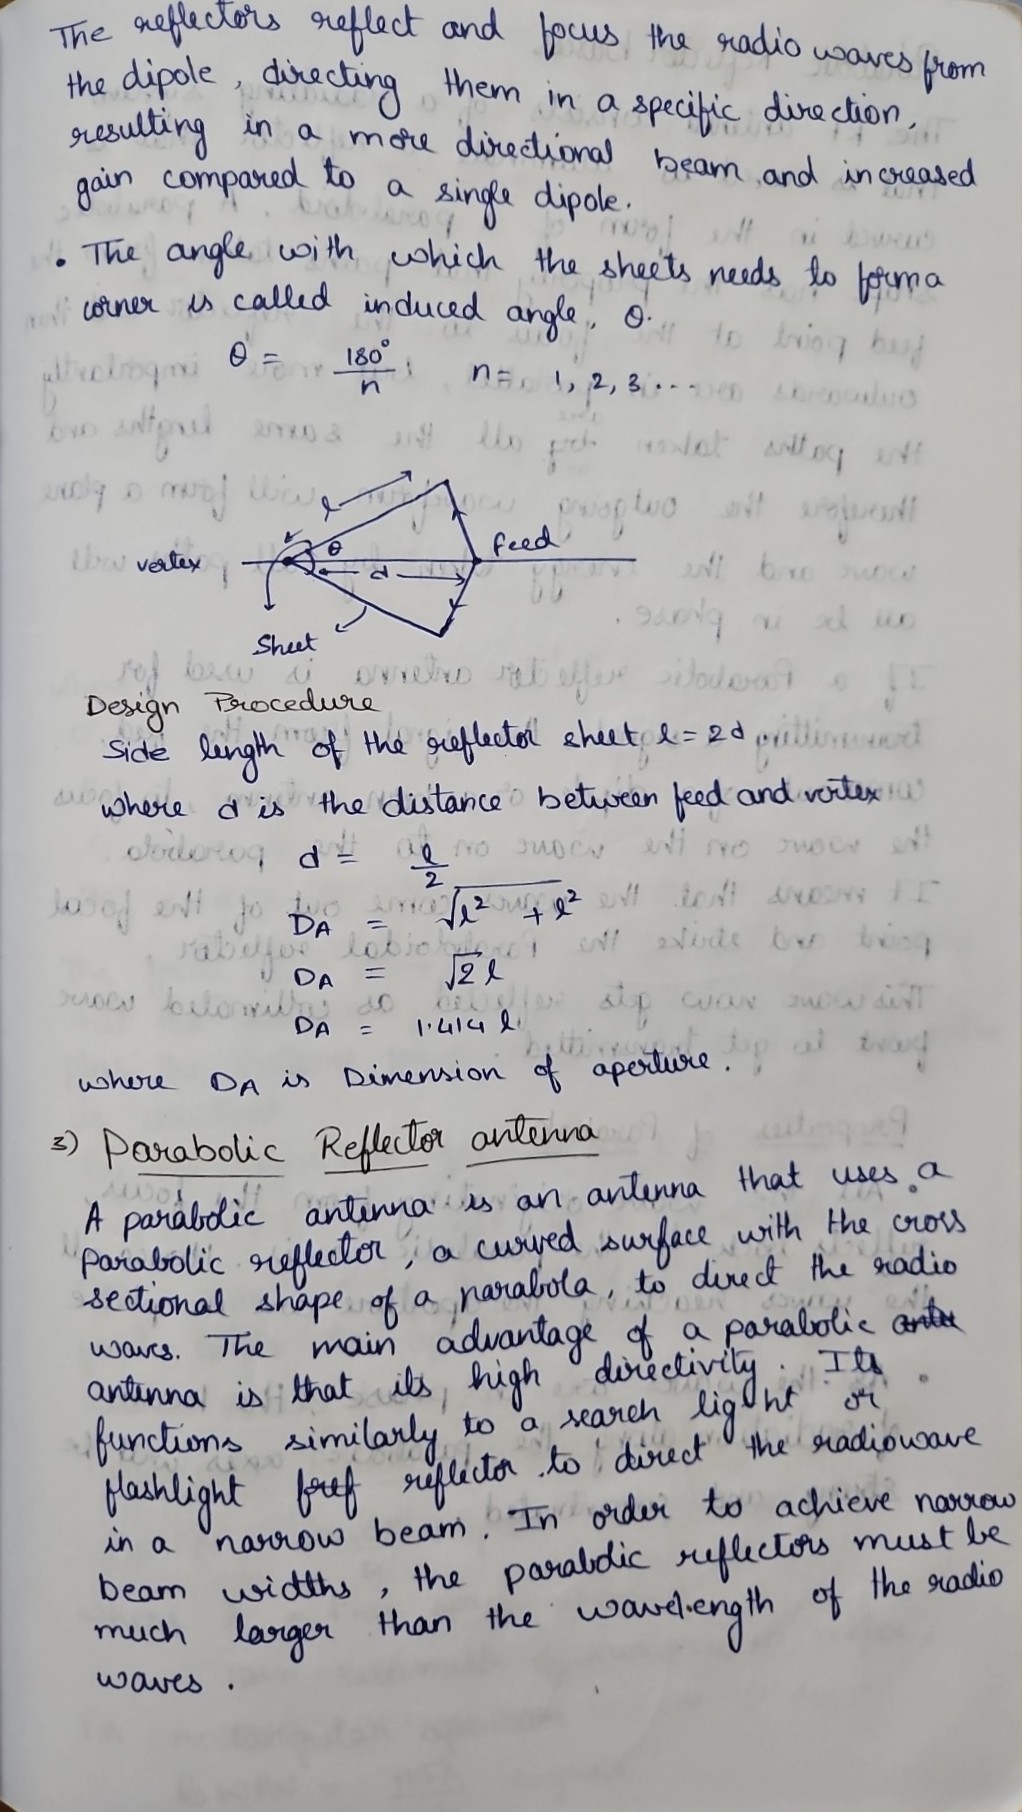 The reflectors reflect and focus the radio waves from
the dipole, directing them in a specific direction,
resulting in a more directional beam and increased
gain compared to a single dipole.
• The angle with which the sheets needs to form a
corner is called induced angle, θ.
θ = 180°/n n = 1, 2, 3 ...
l
θ
feed
vertex
d
Sheet
Design Procedure
Side length of the reflector sheet l = 2d
where d is the distance between feed and vertex
d = l/2
DA = √l² + l²
DA = √2 l
DA = 1.414 l
where DA is Dimension of aperture.
3) Parabolic Reflector antenna
A parabolic antenna is an antenna that uses a
Parabolic reflector, a curved surface with the cross
sectional shape of a parabola, to direct the radio
waves. The main advantage of a parabolic
antenna is that its high directivity. Its
functions similarly to a search light or
flashlight reflector to direct the radiowave
in a narrow beam. In order to achieve narrow
beam widths, the parabolic reflectors must be
much larger than the wavelength of the radio
waves.